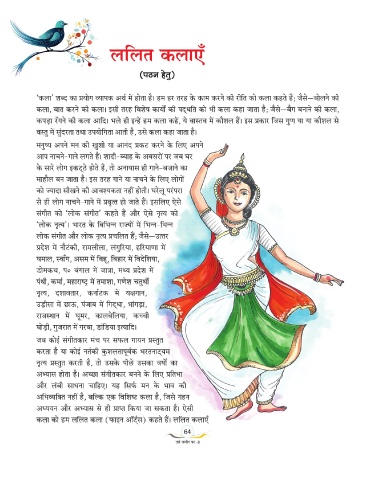 ललित कलाएँ
(पठन हेतु)
'कला' शब्द का प्रयोग व्यापक अर्थ में होता है। हम हर तरह के काम करने की रीति को कला कहते हैं; जैसे—बोलने की
कला, बात करने की कला। इसी तरह विशेष कार्यों की पद्धति को भी कला कहा जाता है; जैसे—बैग बनाने की कला,
कपड़ा रँगने की कला आदि। भले ही इन्हें हम कला कहें, ये वास्तव में कौशल हैं। इस प्रकार जिस गुण या या कौशल से
वस्तु में सुंदरता तथा उपयोगिता आती है, उसे कला कहा जाता है।
मनुष्य अपने मन की खुशी या आनंद प्रकट करने के लिए अपने
आप नाचने-गाने लगते हैं। शादी-ब्याह के अवसरों पर जब घर
के सारे लोग इकट्ठे होते हैं, तो अनायास ही गाने-बजाने का
माहौल बन जाता है। इस तरह गाने या नाचने के लिए लोगों
को ज्यादा सीखने की आवश्यकता नहीं होती। घरेलू परंपरा
से ही लोग नाचने-गाने में प्रवृत्त हो जाते हैं। इसलिए ऐसे
संगीत को 'लोक संगीत' कहते हैं और ऐसे नृत्य को
'लोक नृत्य'। भारत के विभिन्न राज्यों में भिन्न-भिन्न
लोक संगीत और लोक नृत्य प्रचलित हैं; जैसे—उत्तर
प्रदेश में नौटंकी, रामलीला, लगुरिया, हरियाणा में
धमाल, स्वाँग, असम में बिहू, बिहार में विदेशिया,
डोमकच, प० बंगाल में जात्रा, मध्य प्रदेश में
पंथी, कर्मा, महाराष्ट्र में तमाशा, गणेश चतुर्थी
नृत्य, दशावतार, कर्नाटक में यक्षगान,
उड़ीसा में छाऊ, पंजाब में गिद्धा, भांगड़ा,
राजस्थान में घूमर, कालबेलिया, कच्ची
घोड़ी, गुजरात में गरबा, डांडिया इत्यादि।
जब कोई संगीतकार मंच पर सफल गायन प्रस्तुत
करता है या कोई नर्तकी कुशलतापूर्वक भरतनाट्यम
नृत्य प्रस्तुत करती है, तो उसके पीछे उसका वर्षों का
अभ्यास होता है। अच्छा संगीतकार बनने के लिए प्रतिभा
और लंबी साधना चाहिए। यह सिर्फ मन के भाव की
अभिव्यक्ति नहीं है, बल्कि एक विशिष्ट कला है, जिसे गहन
अध्ययन और अभ्यास से ही प्राप्त किया जा सकता है। ऐसी
कला को हम ललित कला (फाइन आर्ट्स) कहते हैं। ललित कलाएँ
64